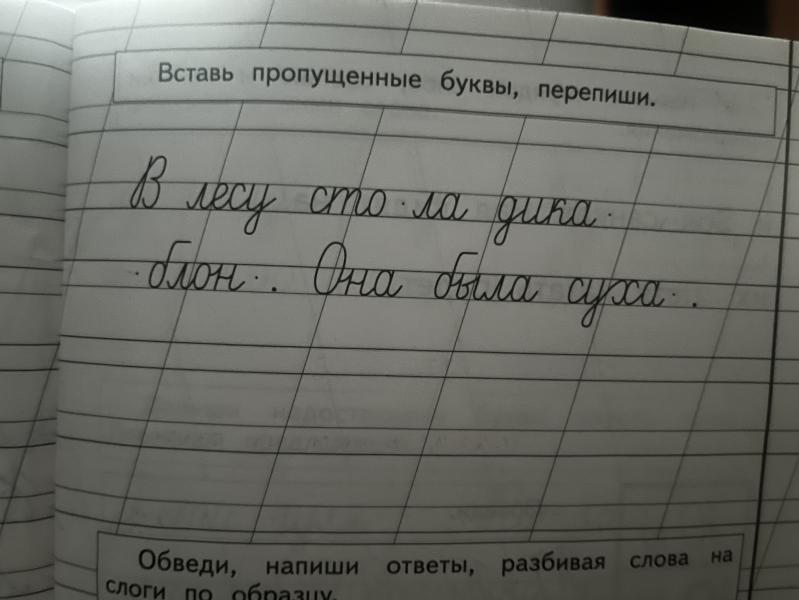 Вставь пропущенные буквы, перепиши.
В лесу сто·ла дика·
·блон·. Она была суха·.
Обведи, напиши ответы, разбивая слова на
слоги по образцу.